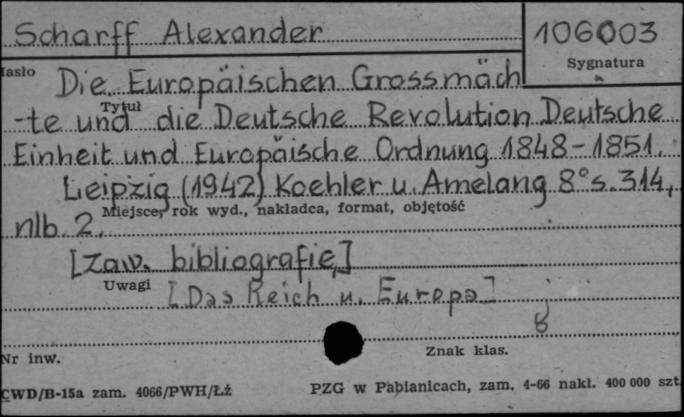 Scharff Alexander 106003
Hasło Sygnatura
Die Europäischen Grossmäch
-te und die Deutsche Revolution Deutsche
Tytuł
Einheit und Europäische Ordnung 1848-1851.
Leipzig (1942) Koehler u. Amelang 8° s. 314,
Miejsce, rok wyd., nakładca, format, objętość
nlb 2.
[zaw. bibliografię]
Uwagi [Das Reich u. Europa]
Nr inw. Znak klas.
CWD/B-15a zam. 4066/PWH/Łż PZG w Pabianicach, zam. 4-66 nakł. 400 000 szt.